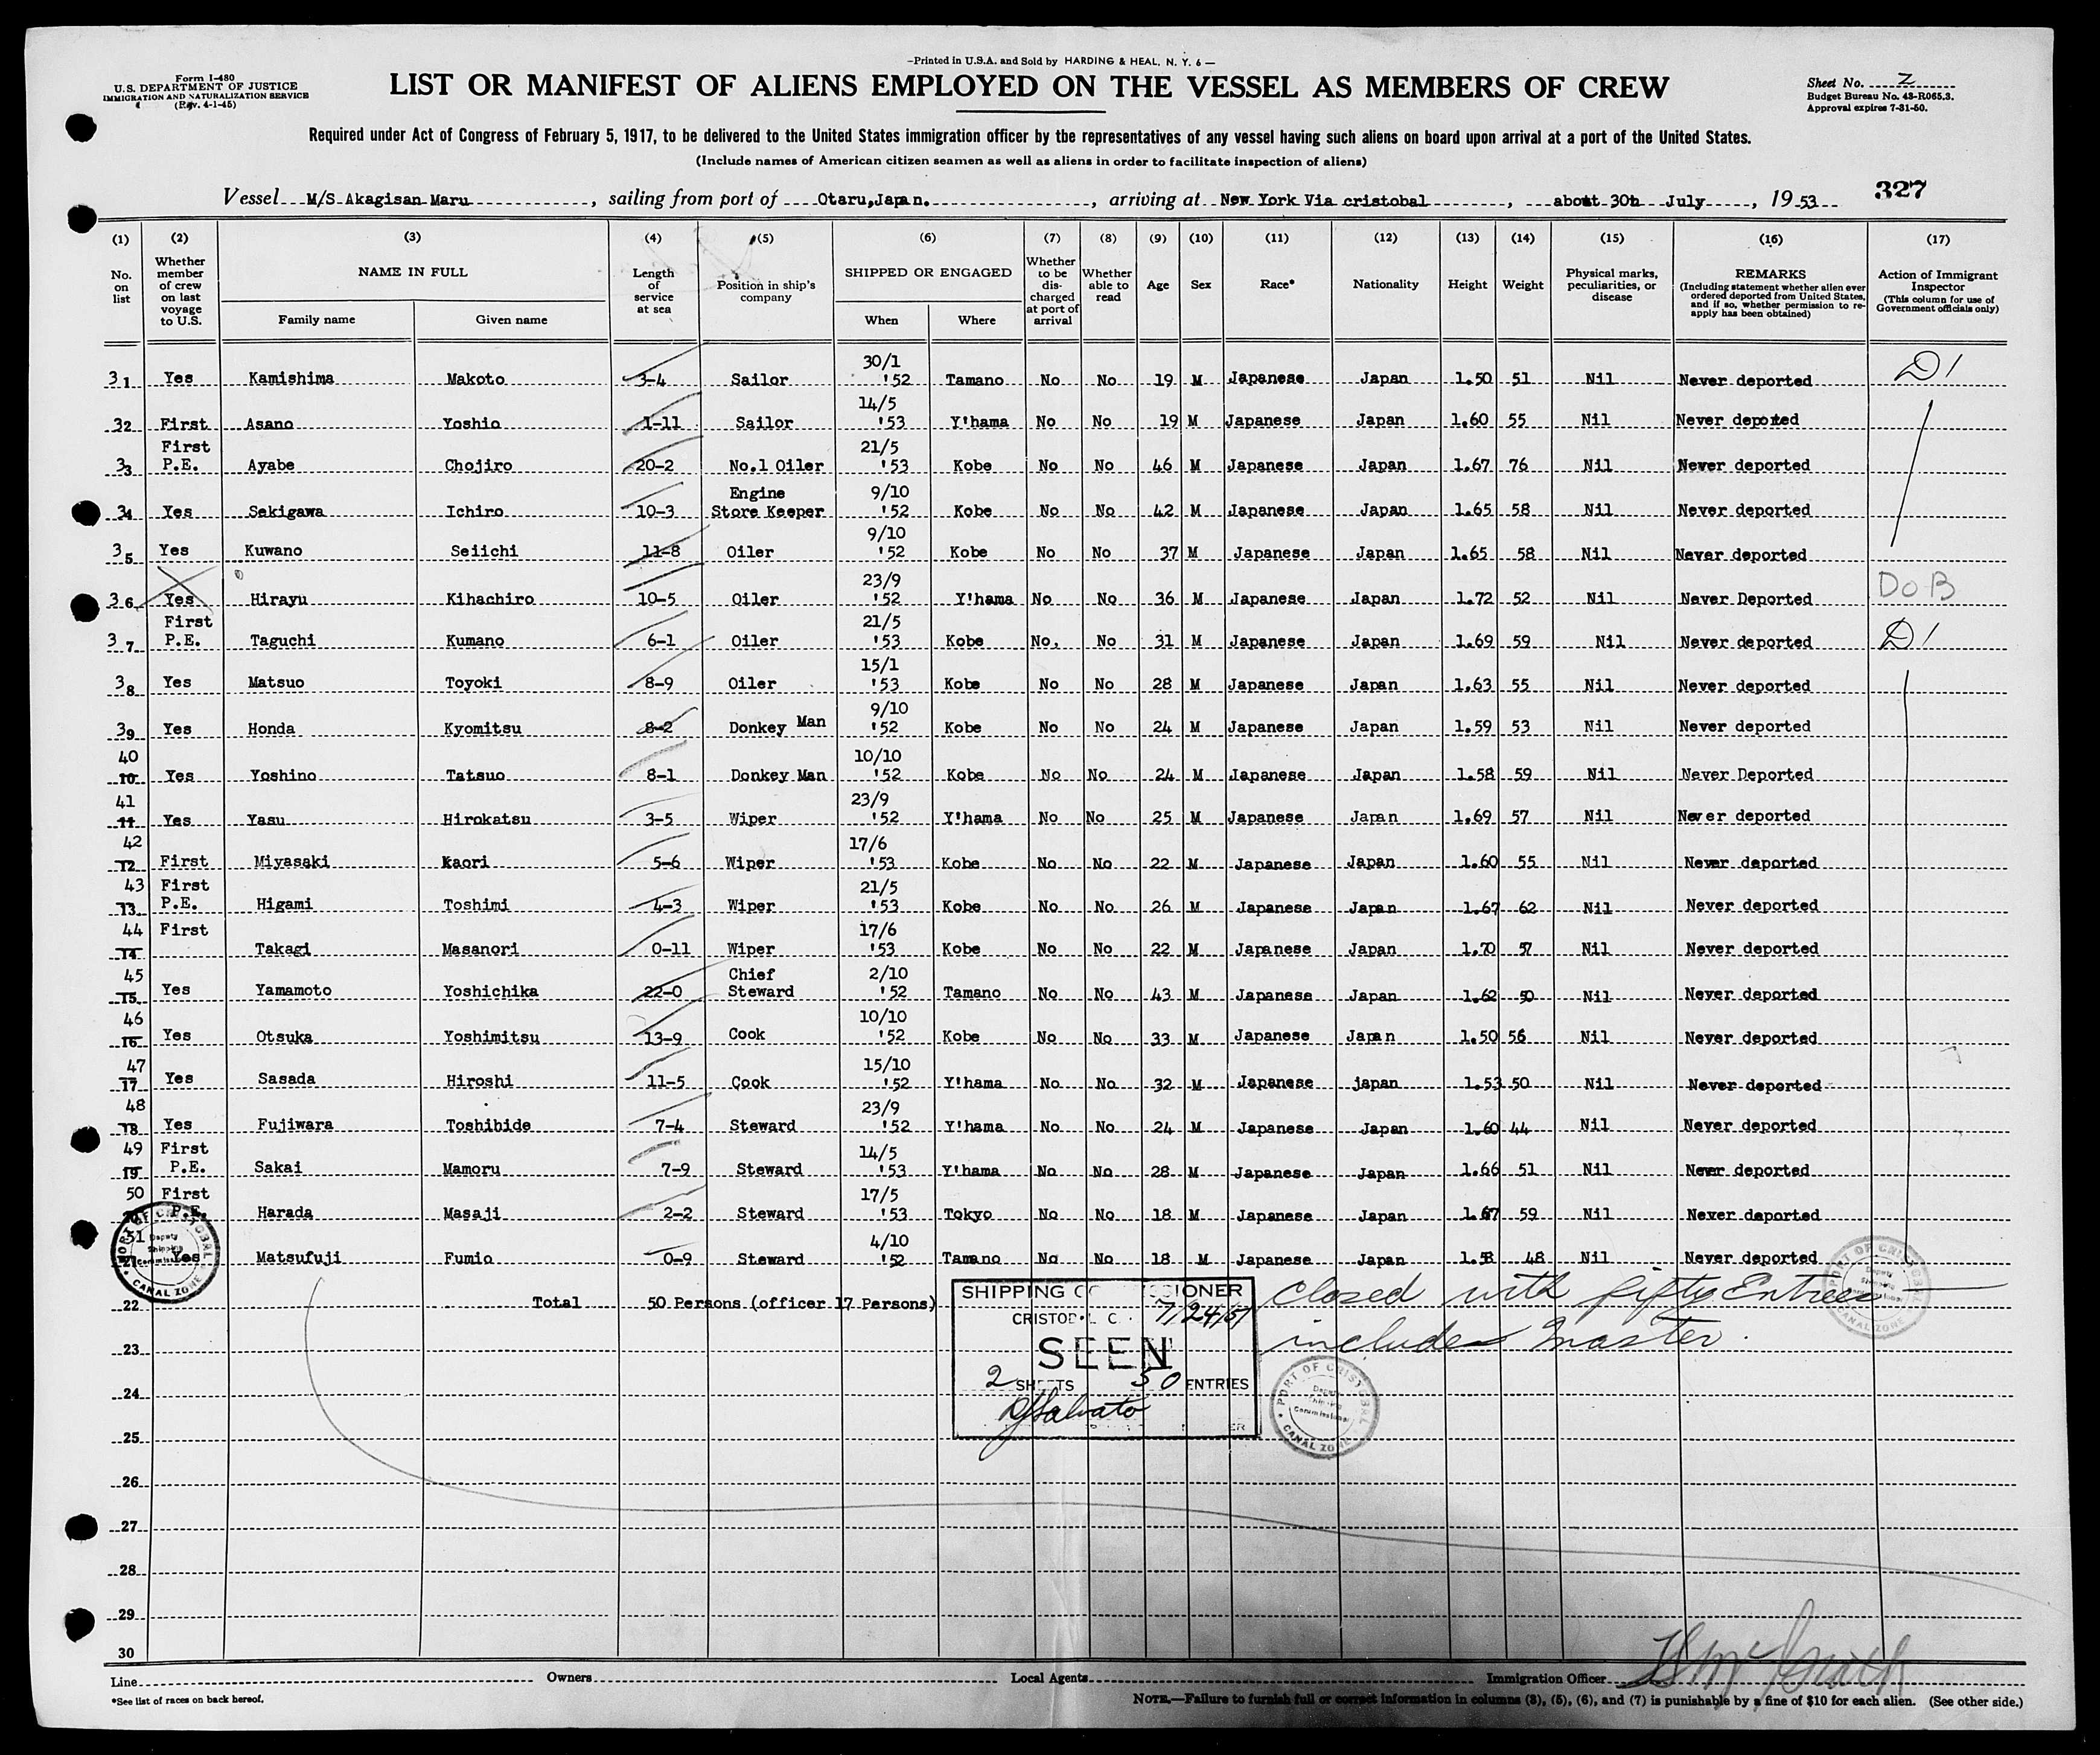 —Printed in U.S.A. and Sold by HARDING & HEAL, N. Y. 6—
Form I-480
U.S. DEPARTMENT OF JUSTICE
IMMIGRATION AND NATURALIZATION SERVICE
(Rev. 4-1-45)
LIST OR MANIFEST OF ALIENS EMPLOYED ON THE VESSEL AS MEMBERS OF CREW
Sheet No. 2
Budget Bureau No. 43-R065.3.
Approval expires 7-31-50.
Required under Act of Congress of February 5, 1917, to be delivered to the United States immigration officer by the representatives of any vessel having such aliens on board upon arrival at a port of the United States.
(Include names of American citizen seamen as well as aliens in order to facilitate inspection of aliens)
Vessel M/S Akagisan Maru, sailing from port of Otaru,Japan., arriving at New York Via cristobal, about 30th July, 19 53
327
(1) (2) (3) (4) (5) (6) (7) (8) (9) (10) (11) (12) (13) (14) (15) (16) (17)
No. on list
Whether member of crew on last voyage to U.S.
NAME IN FULL
Family name
Given name
Length of service at sea
Position in ship's company
SHIPPED OR ENGAGED
When
Where
Whether to be discharged at port of arrival
Whether able to read
Age
Sex
Race*
Nationality
Height
Weight
Physical marks, peculiarities, or disease
REMARKS
(Including statement whether alien ever ordered deported from United States, and if so, whether permission to reapply has been obtained)
Action of Immigrant Inspector
(This column for use of Government officials only)
31 Yes Kamishima Makoto 3-4 Sailor 30/1 '52 Tamano No No 19 M Japanese Japan 1.50 51 Nil Never deported D1
32 First Asano Yoshio 1-11 Sailor 14/5 '53 Y'hama No No 19 M Japanese Japan 1.60 55 Nil Never deported
33 First P.E. Ayabe Chojiro 20-2 No.1 Oiler 21/5 '53 Kobe No No 46 M Japanese Japan 1.67 76 Nil Never deported
34 Yes Sekigawa Ichiro 10-3 Engine Store Keeper 9/10 '52 Kobe No No 42 M Japanese Japan 1.65 58 Nil Never deported
35 Yes Kuwano Seiichi 11-8 Oiler 9/10 '52 Kobe No No 37 M Japanese Japan 1.65 58 Nil Never deported
36 Yes Hirayu Kihachiro 10-5 Oiler 23/9 '52 Y'hama No No 36 M Japanese Japan 1.72 52 Nil Never Deported DoB
37 First P.E. Taguchi Kumano 6-1 Oiler 21/5 '53 Kobe No, No 31 M Japanese Japan 1.69 59 Nil Never deported D1
38 Yes Matsuo Toyoki 8-9 Oiler 15/1 '53 Kobe No No 28 M Japanese Japan 1.63 55 Nil Never deported
39 Yes Honda Kyomitsu 8-2 Donkey Man 9/10 '52 Kobe No No 24 M Japanese Japan 1.59 53 Nil Never deported
40 10 Yes Yoshino Tatsuo 8-1 Donkey Man 10/10 '52 Kobe No No 24 M Japanese Japan 1.58 59 Nil Never Deported
41 11 Yes Yasu Hirokatsu 3-5 Wiper 23/9 '52 Y'hama No No 25 M Japanese Japan 1.69 57 Nil Never deported
42 12 First Miyasaki Kaori 5-6 Wiper 17/6 '53 Kobe No No 22 M Japanese Japan 1.60 55 Nil Never deported
43 13 First P.E. Higami Toshimi 4-3 Wiper 21/5 '53 Kobe No No 26 M Japanese Japan 1.67 62 Nil Never deported
44 14 First Takagi Masanori 0-11 Wiper 17/6 '53 Kobe No No 22 M Japanese Japan 1.70 57 Nil Never deported
45 15 Yes Yamamoto Yoshichika 22-0 Chief Steward 2/10 '52 Tamano No No 43 M Japanese Japan 1.62 50 Nil Never deported
46 16 Yes Otsuka Yoshimitsu 13-9 Cook 10/10 '52 Kobe No No 33 M Japanese Japan 1.50 56 Nil Never deported
47 17 Yes Sasada Hiroshi 11-5 Cook 15/10 '52 Y'hama No No 32 M Japanese japan 1.53 50 Nil Never deported
48 18 Yes Fujiwara Toshihide 7-4 Steward 23/9 '52 Y'hama No No 24 M Japanese Japan 1.60 44 Nil Never deported
49 19 First P.E. Sakai Mamoru 7-9 Steward 14/5 '53 Y'hama No No 28 M Japanese Japan 1.66 51 Nil Never deported
50 First P.E. Harada Masaji 2-2 Steward 17/5 '53 Tokyo No No 18 M Japanese Japan 1.67 59 Nil Never deported
51 21 Yes Matsufuji Fumio 0-9 Steward 4/10 '52 Tamano No No 18 M Japanese Japan 1.58 48 Nil Never deported
PORT OF CRISTOBAL Deputy Shipping Commissioner CANAL ZONE
22 Total 50 Persons (officer 17 Persons)
SHIPPING COMMISSIONER
CRISTOBAL C. 7/24/5
SEEN
2 SHEETS 50 ENTRIES
Closed with fifty Entries
includes Master.
PORT OF CRISTOBAL Deputy Shipping Commissioner CANAL ZONE
PORT OF CRISTOBAL Deputy Shipping Commissioner CANAL ZONE
23
24
25
26
27
28
29
30
Line Owners Local Agents Immigration Officer
*See list of races on back hereof.
NOTE.—Failure to furnish full or correct information in columns (3), (5), (6), and (7) is punishable by a fine of $10 for each alien. (See other side.)